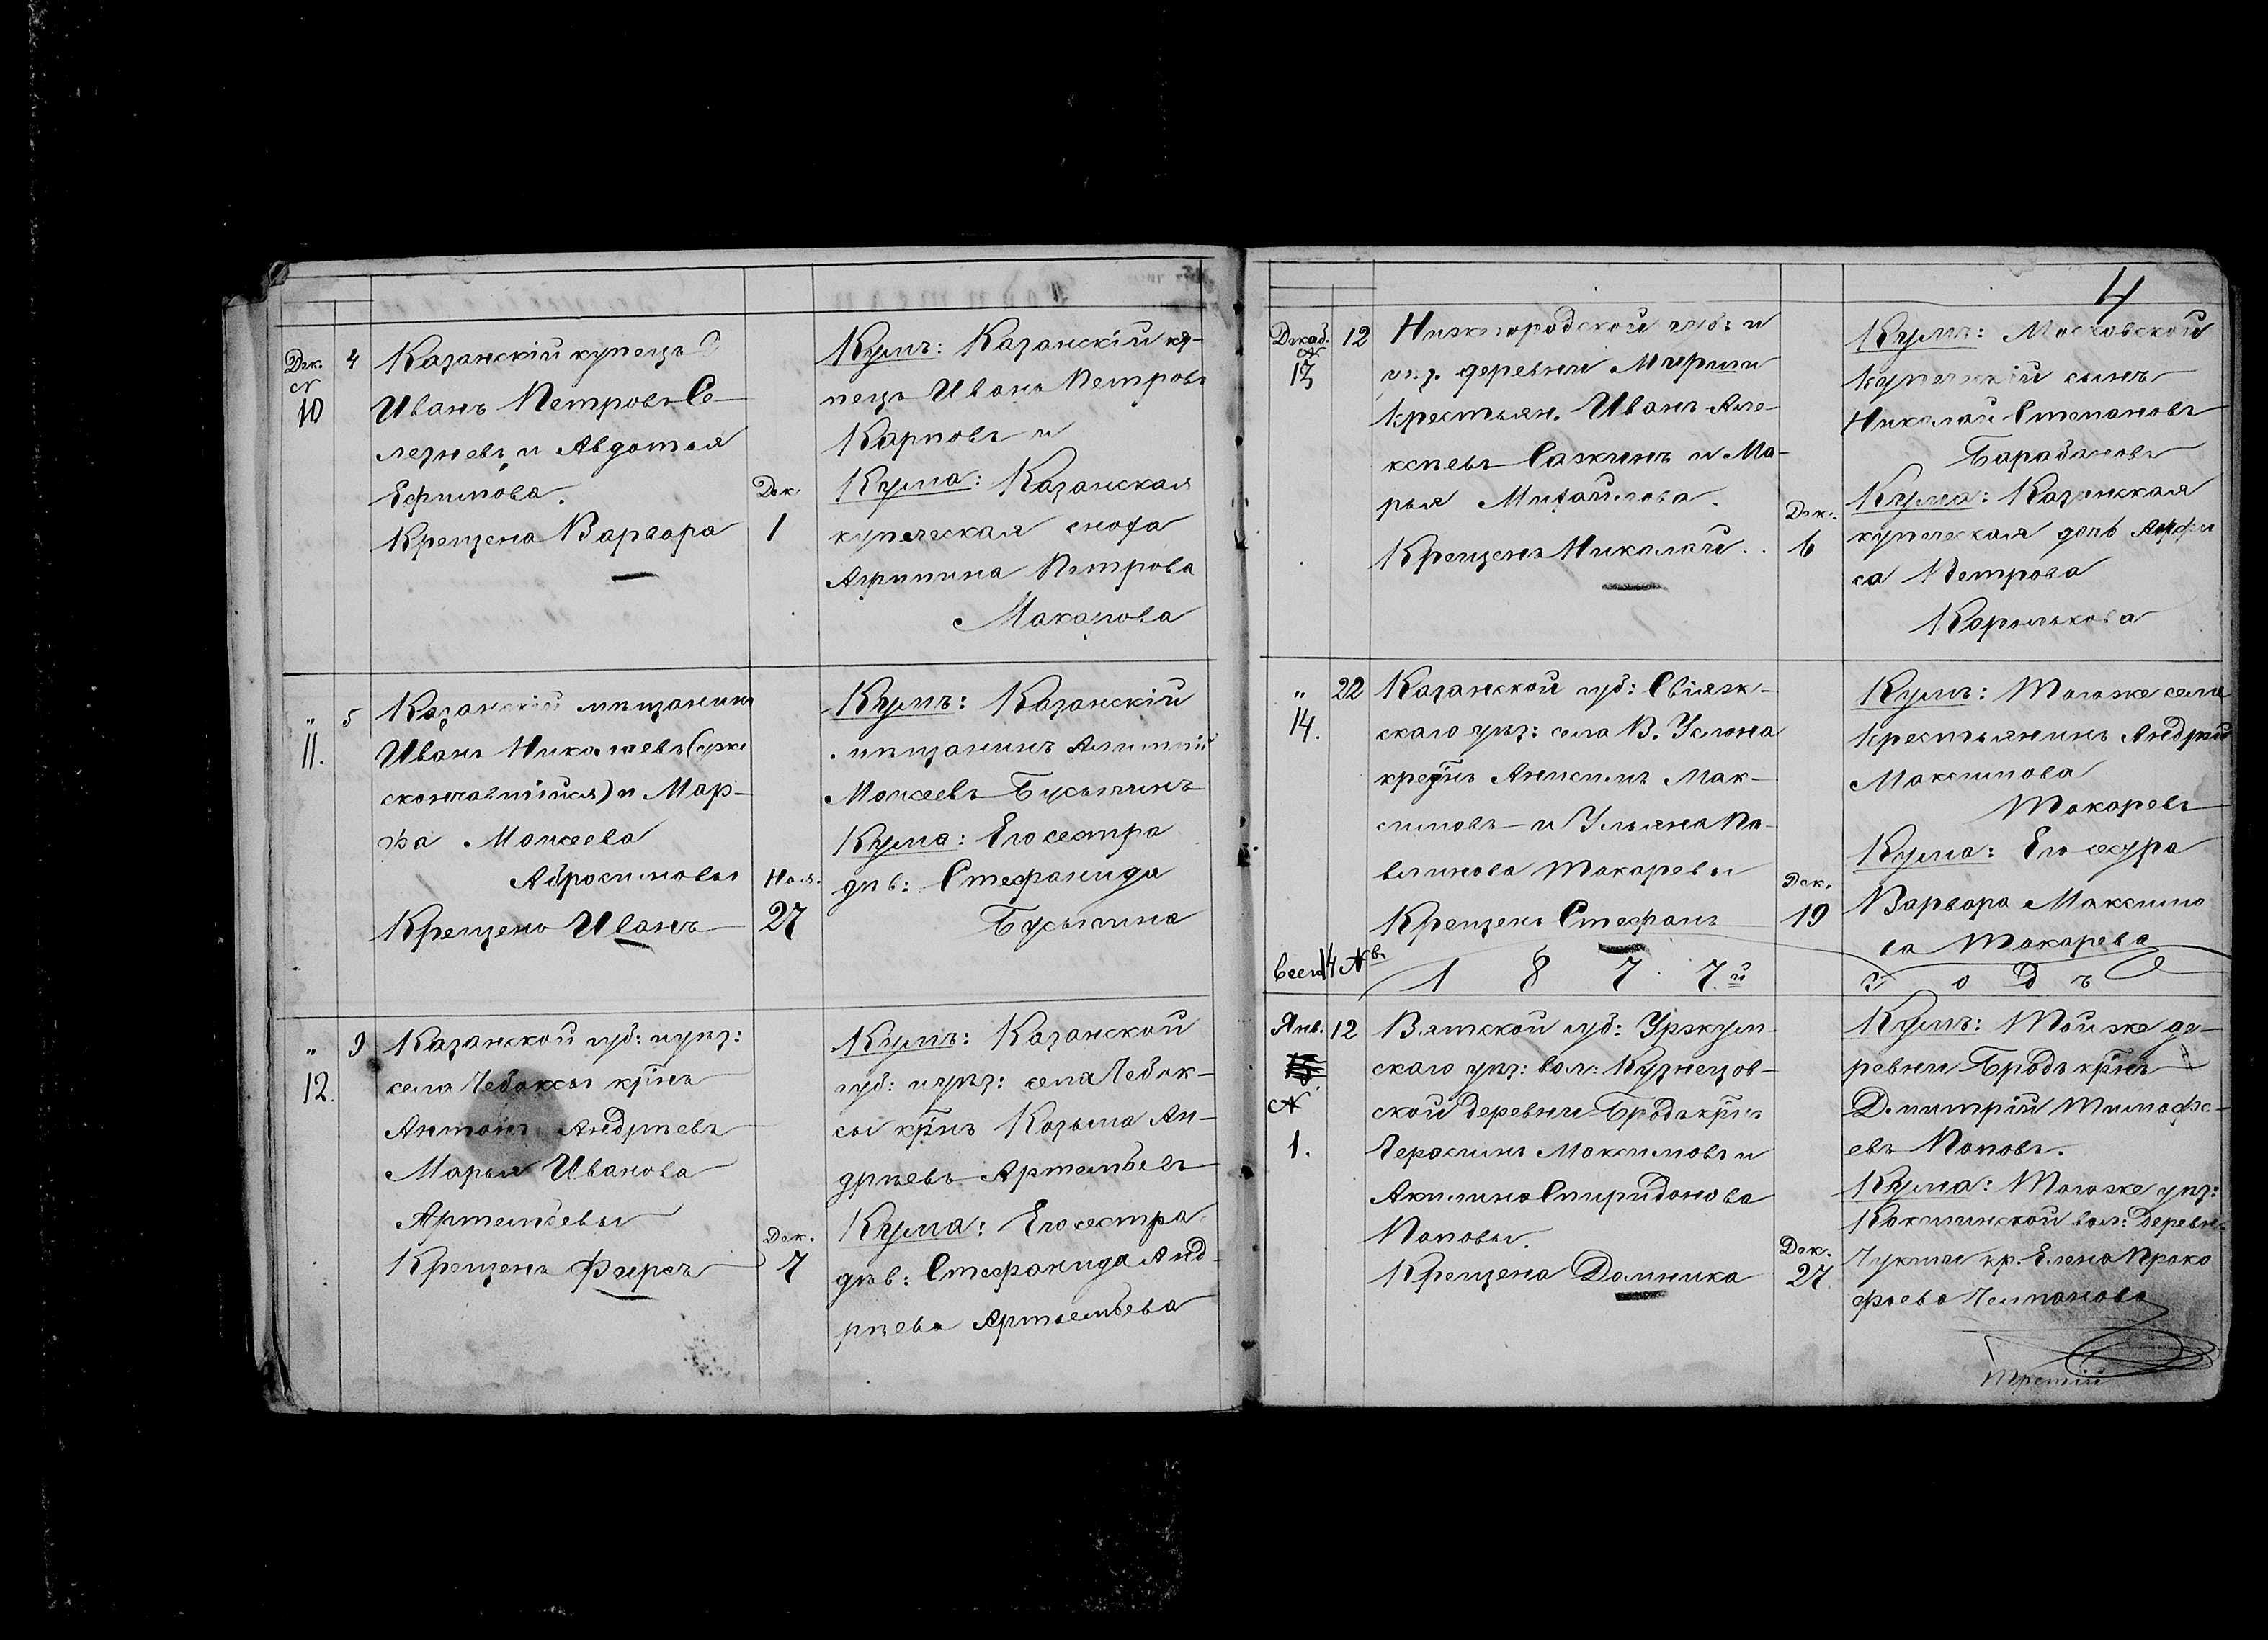 Дек. 4 Казанскій купецъ
№ 10 Иванъ Петровъ Се-
лезневъ, и Авдотья
Ефимова.
Крещена Варвара
Дек.
1
Кумъ: Казанскій ку-
пецъ Иванъ Петровъ
Карповъ и
Кума: Казанская
купеческая сноха
Агрипина Петрова
Макарова
" 5 Казанскій мѣщанинъ
11. Иванъ Николаевъ (уже
скончавшійся) и Мар-
фа Моисеева
Абросимовы
Крещенъ Иванъ
Ноя.
27
Кумъ: Казанскій
мѣщанинъ
Моисеевъ Бусыгинъ
Кума: Его сестра
дѣв: Стефанида
Бусыгина
" 9 Казанской губ: и уѣз:
12. села Чебоксы кр̃нъ
Антонъ Андреевъ
Марья Ивановa
Артемьевы
Крещенъ Фирсъ
Дек.
7
Кумъ: Казанской
губ: и уѣз: села Чебок-
сы кр̃нъ Козьма Ан-
дреевъ Артемьевъ
Кума: Его сестра
дѣв: Стефанида Анд-
реева Артемьева
4
Декаб. 12 Нижегородской губ: и
№ 13 уѣз. деревни
крестьян. Иванъ Але-
ксѣевъ Сажинъ и Ма-
рья Михайлова.
Крещенъ Николай.
Дек.
6
Кумъ: Московской
купеческій сынъ
Николай Степановъ
Барабановъ
Кума: Казанская
купеческая дочь Анфи
са Петрова
Карпова
" 22 Казанской губ: Свіяж-
14. скаго уѣз: села В. Услона
кре̃нъ Анисимъ Мак-
симовъ и Ульяна Па-
влинова Токаревы
Крещенъ Стефанъ
Дек.
19
Кумъ: Тогоже села
крестьянинъ Андрей
Максимова
Токаревъ
Кума: Его сестра
Варвара Максимо
ва Токарева
Всего 14 №въ
1 8 7 7.й г о д ъ
Янв. 12 Вятской губ: Уржум-
скаго уѣз: вол: Кузнецов-
№ ской деревни Бродъ кр̃нъ
1. Герасимъ Максимовъ и
Акилина Спиридонова
Поповы.
Крещена Домника
Дек.
27
Кумъ: Той же де-
ревни Бродъ кр̃нъ
Димитрій Тимофе-
евъ Поповъ.
Кума: Тогоже уѣз:
Кокшинской вол: деревни
кр. Елена Проко
фьева
Третій